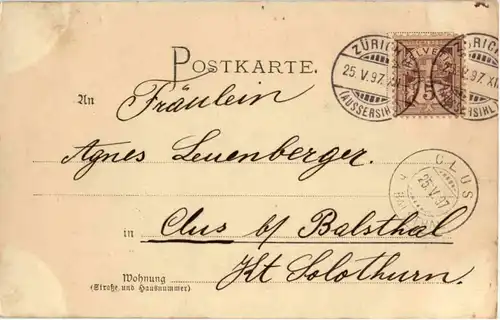 POSTKARTE.
ZÜRICH
25.V.97.XII
(AUSSERSIHL)
HELVETIA
5
ZÜRICH
97.XII
An Fräulein
Agnes Leuenberger.
CLUS
25.V.97
in Clus b/ Balsthal
Kt Solothurn.
Wohnung
(Straße und Hausnummer)